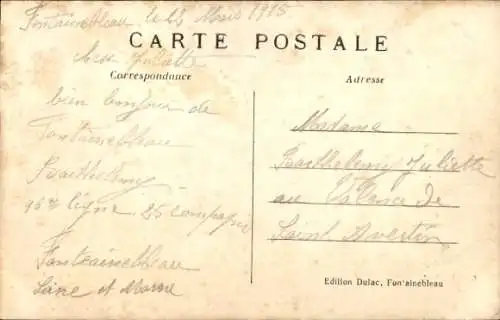 Fontainebleau le 22 Mars 1915
CARTE POSTALE
Juliette
Correspondance
Adresse
bien bonjour de
Fontainebleau
Barthelemy
25 compagnie
Fontainebleau
Seine et Marne
Madame
Barthelemy Juliette
au de
Saint Avertin
Edition Dulac, Fontainebleau